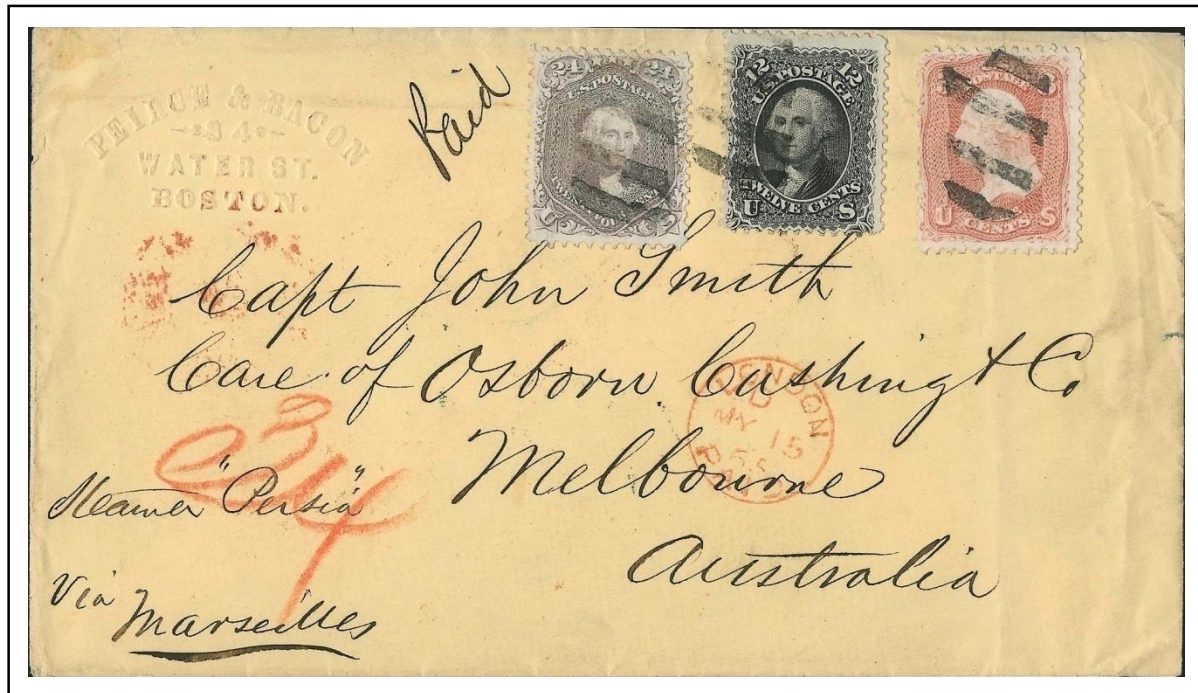 PEIRCE & BACON
84
WATER ST.
BOSTON.
Paid
24 24
U.S. POSTAGE
U S
12 12
U.S. POSTAGE
TWELVE CENTS
U S
POSTAGE
U S
CENTS
Capt John Smith
Care of Osborn Cushing & Co
Melbourne
Australia
LONDON
MY 15
PAID
3
24
Steamer "Persia"
Via Marseilles